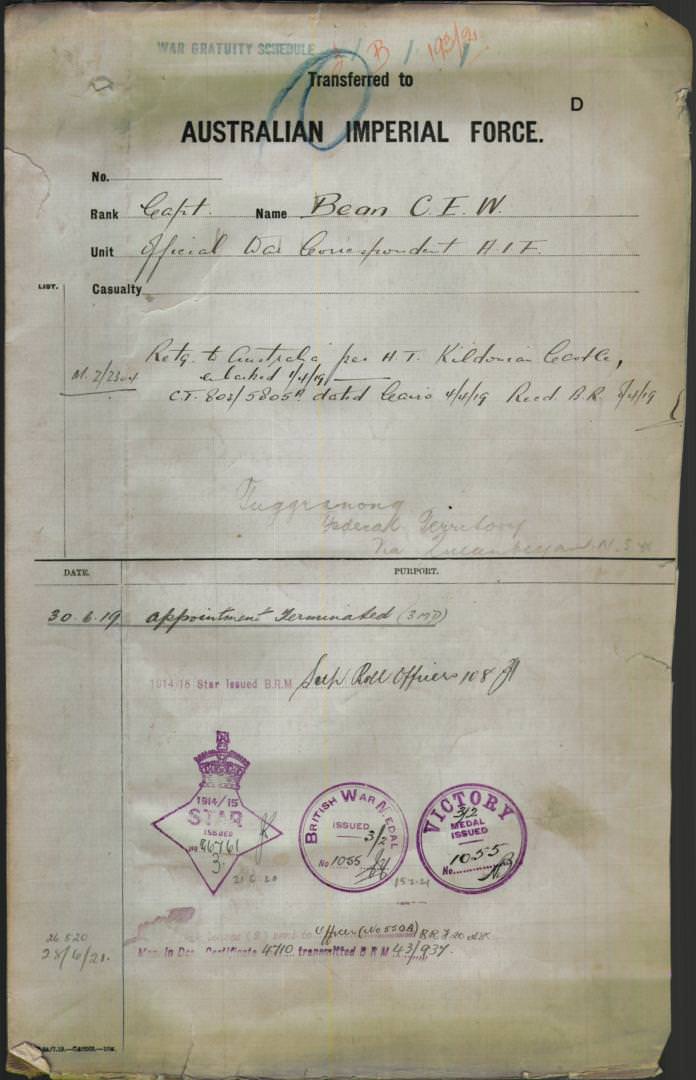 WAR GRATUITY SCHEDULE B / 193/21
Transferred to
D
AUSTRALIAN IMPERIAL FORCE.
No.
Rank Capt. Name Bean C. E. W.
Unit Official War Correspondent A.I.F.
LIST. Casualty
M. 2/2304 Retg. to Australia per H.T. Kildonian Castle,
embarked 1/4/19
C.T. 803/5805 dated Cairo 4/4/19 Recd. B.R. 8/4/19
Tuggranong
Federal Territory
Via Queanbeyan N.S.W.
DATE. PURPORT.
30.6.19 appointment Terminated (3 MD)
1914/15 Star Issued B.R.M. Sup. Roll Officers 108
1914/15
STAR
ISSUED
No 86761
3
21 6 20
BRITISH WAR MEDAL
ISSUED
3/2
No 1055
15 2 21
VICTORY
3/2
MEDAL
ISSUED
1055
No.
26 5 20 sent to Officer (No 550A) B.R.
28/6/21. Men. in Des. Certificate 4710 transmitted B R M 43/937.